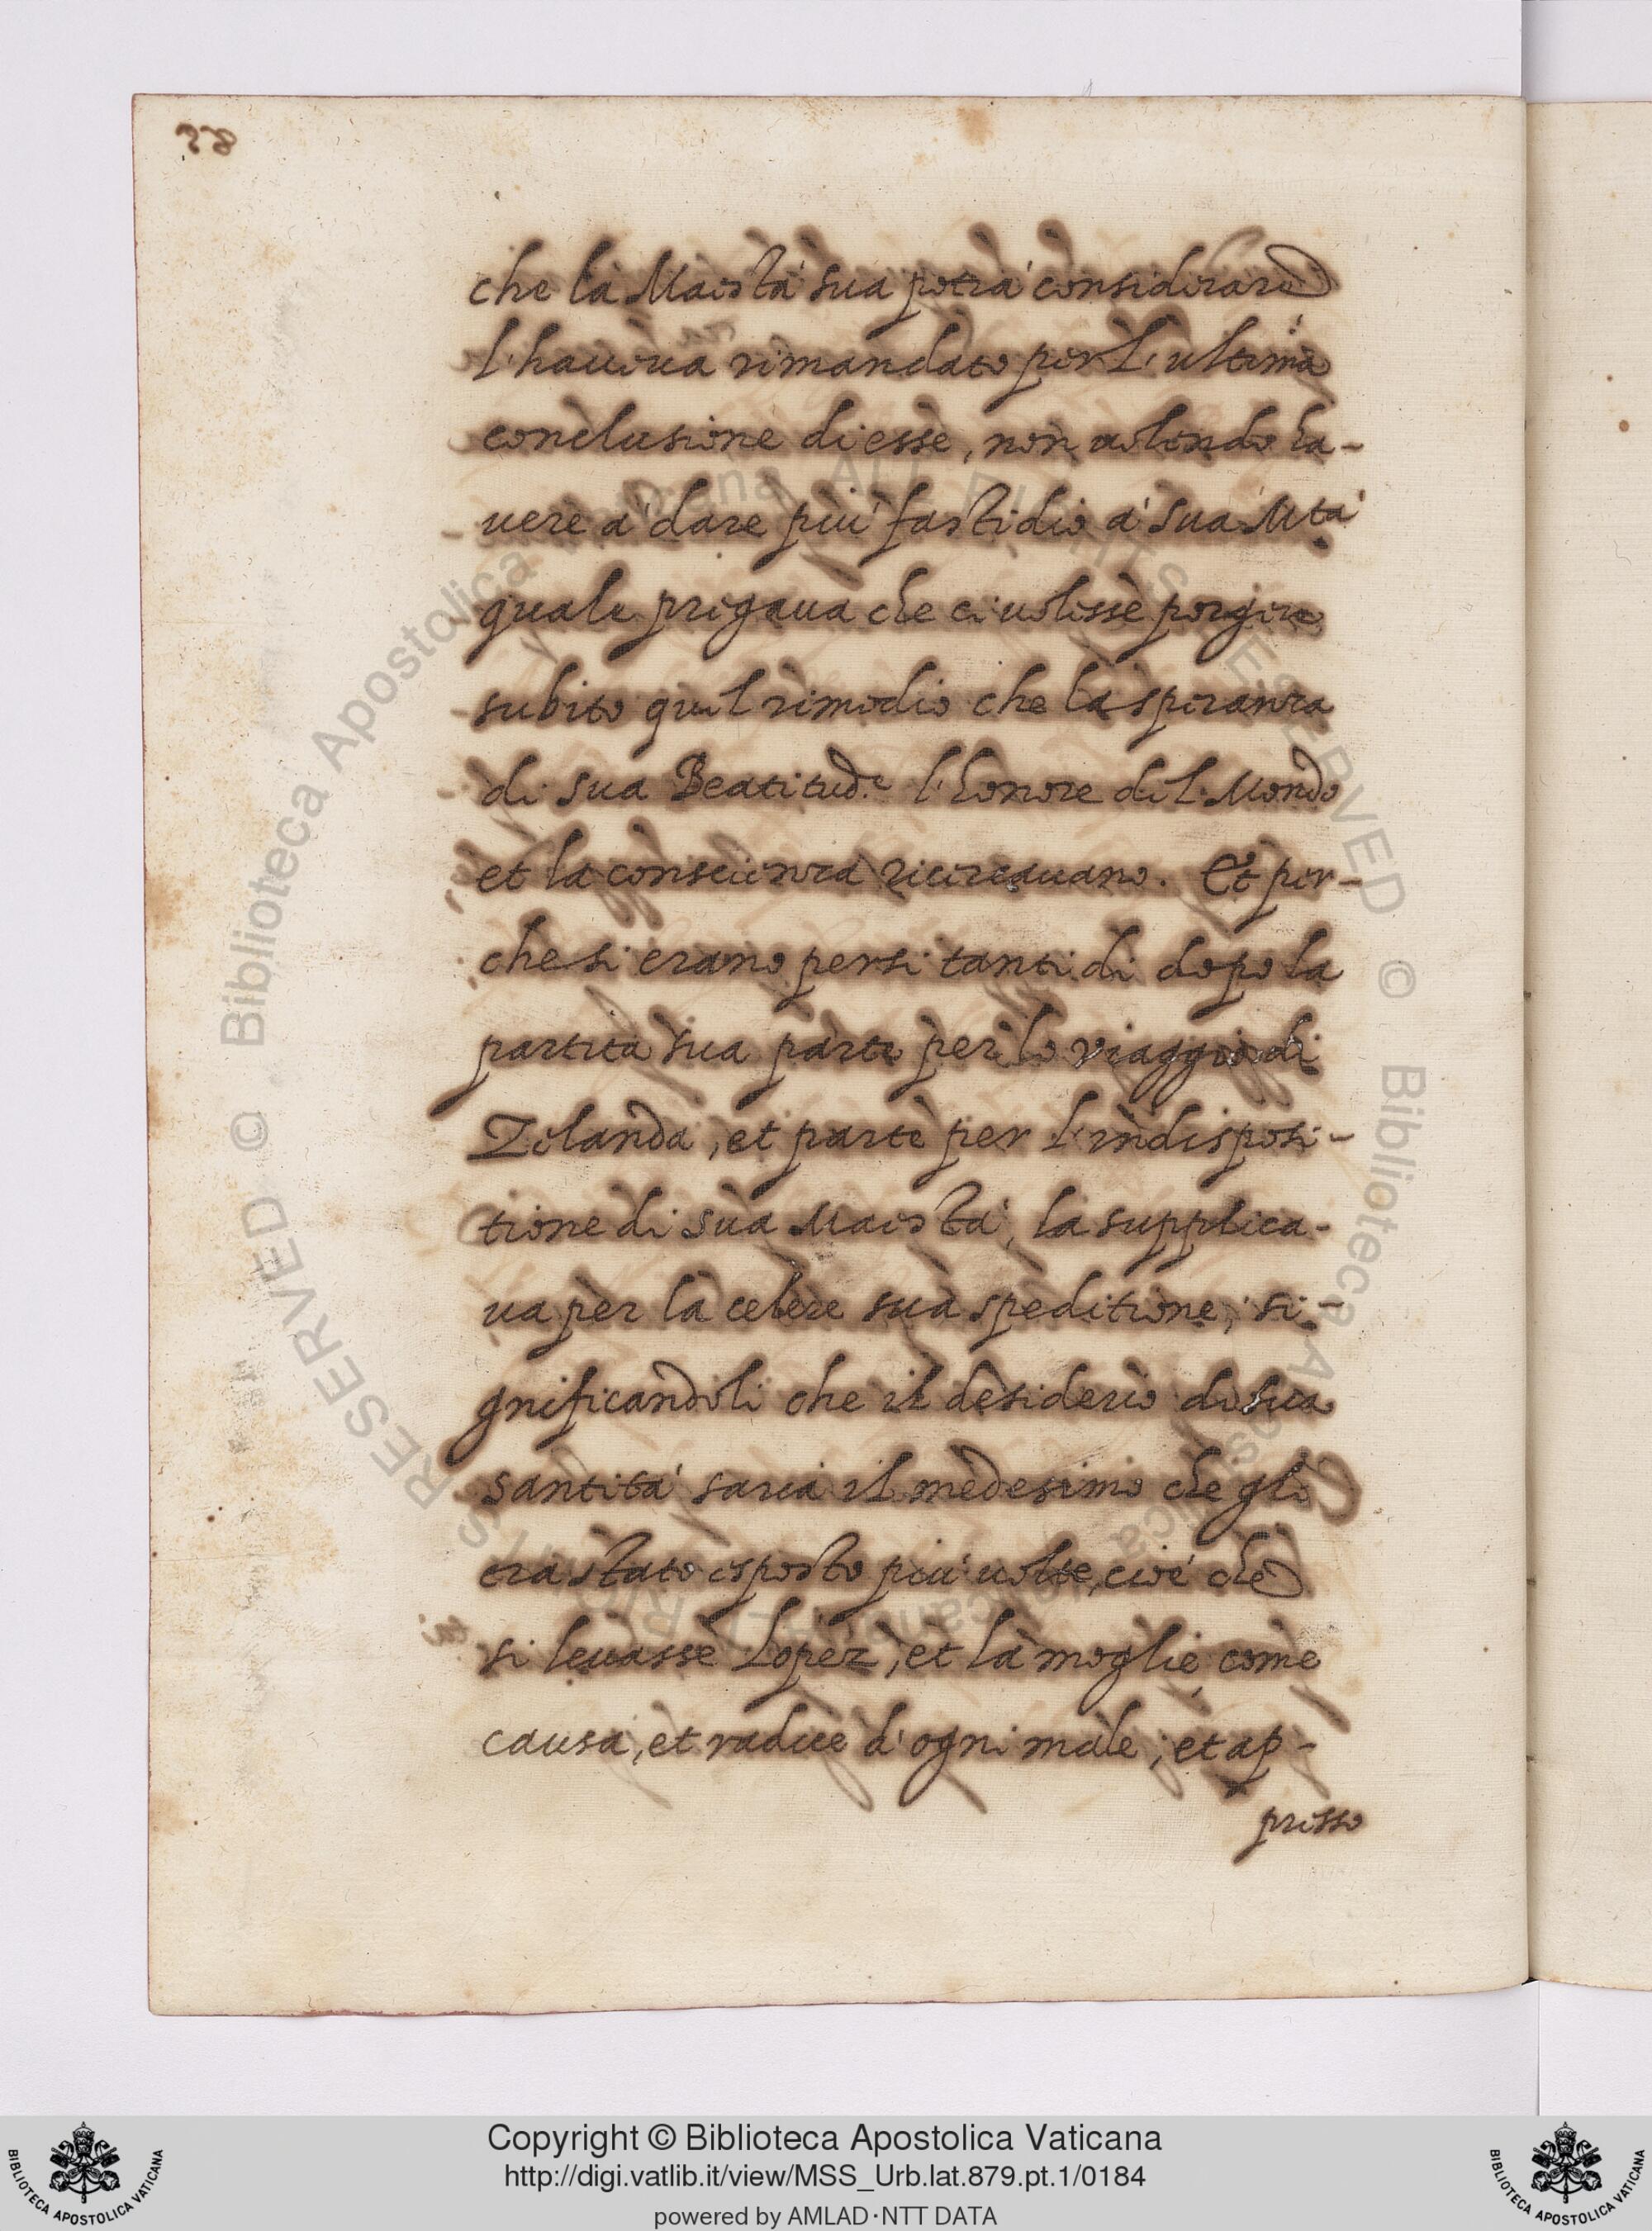 che la Maestà sua potrà considerare
l'haueua rimandato per l'ultima
conclusione di esse, non uolendo ha-
uere à dare più fastidio à sua Mtà
quale pregaua che ci uolesse porgere
subito quel rimedio che la speranza
di sua Beatitud.e l'honore del Mondo
et la conscienza ricercauano. Et per-
che si erano persi tanti di dopo la
partita sua parte per lo viaggio di
Zelanda, et parte per l'indisposi-
tione di sua Maestà, la supplica-
ua per la celere sua speditione, si-
gnificandoli che il desiderio di sua
santità saria il medesimo che gli
era stato esposto più uolte, cioè che
si leuasse Lopez, et la moglie come
causa, et radice d'ogni male; et ap-
presso
Copyright © Biblioteca Apostolica Vaticana
http://digi.vatlib.it/view/MSS_Urb.lat.879.pt.1/0184
powered by AMLAD·NTT DATA
BIBLIOTECA APOSTOLICA VATICANA
BIBLIOTECA APOSTOLICA VATICANA